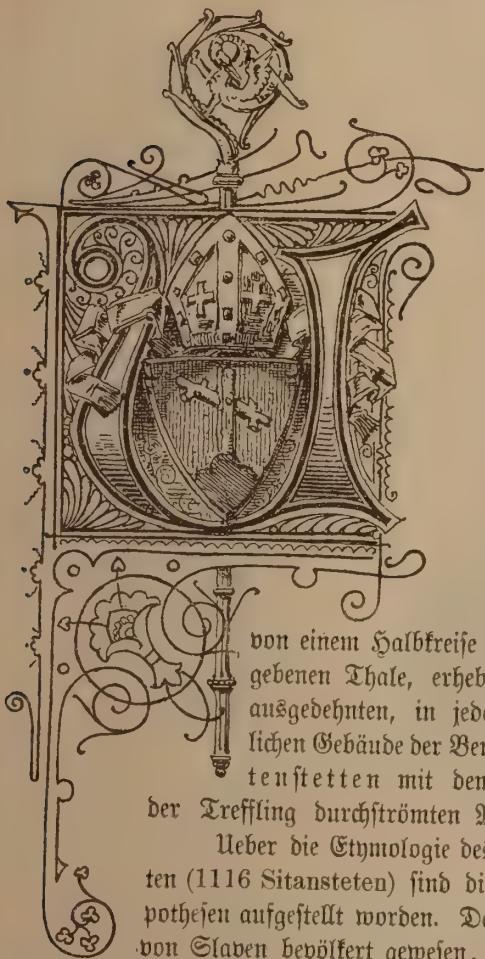 U
von einem Halbkreise
gebenen Thale, erheb
ausgedehnten, in jede
lichen Gebäude der Ber
tenstetten mit dem
der Treffling durchströmten
Ueber die Etymologie des
ten (1116 Sitansteten) sind di
pothesen aufgestellt worden. Da
von Slaven bevölkert gewesen,